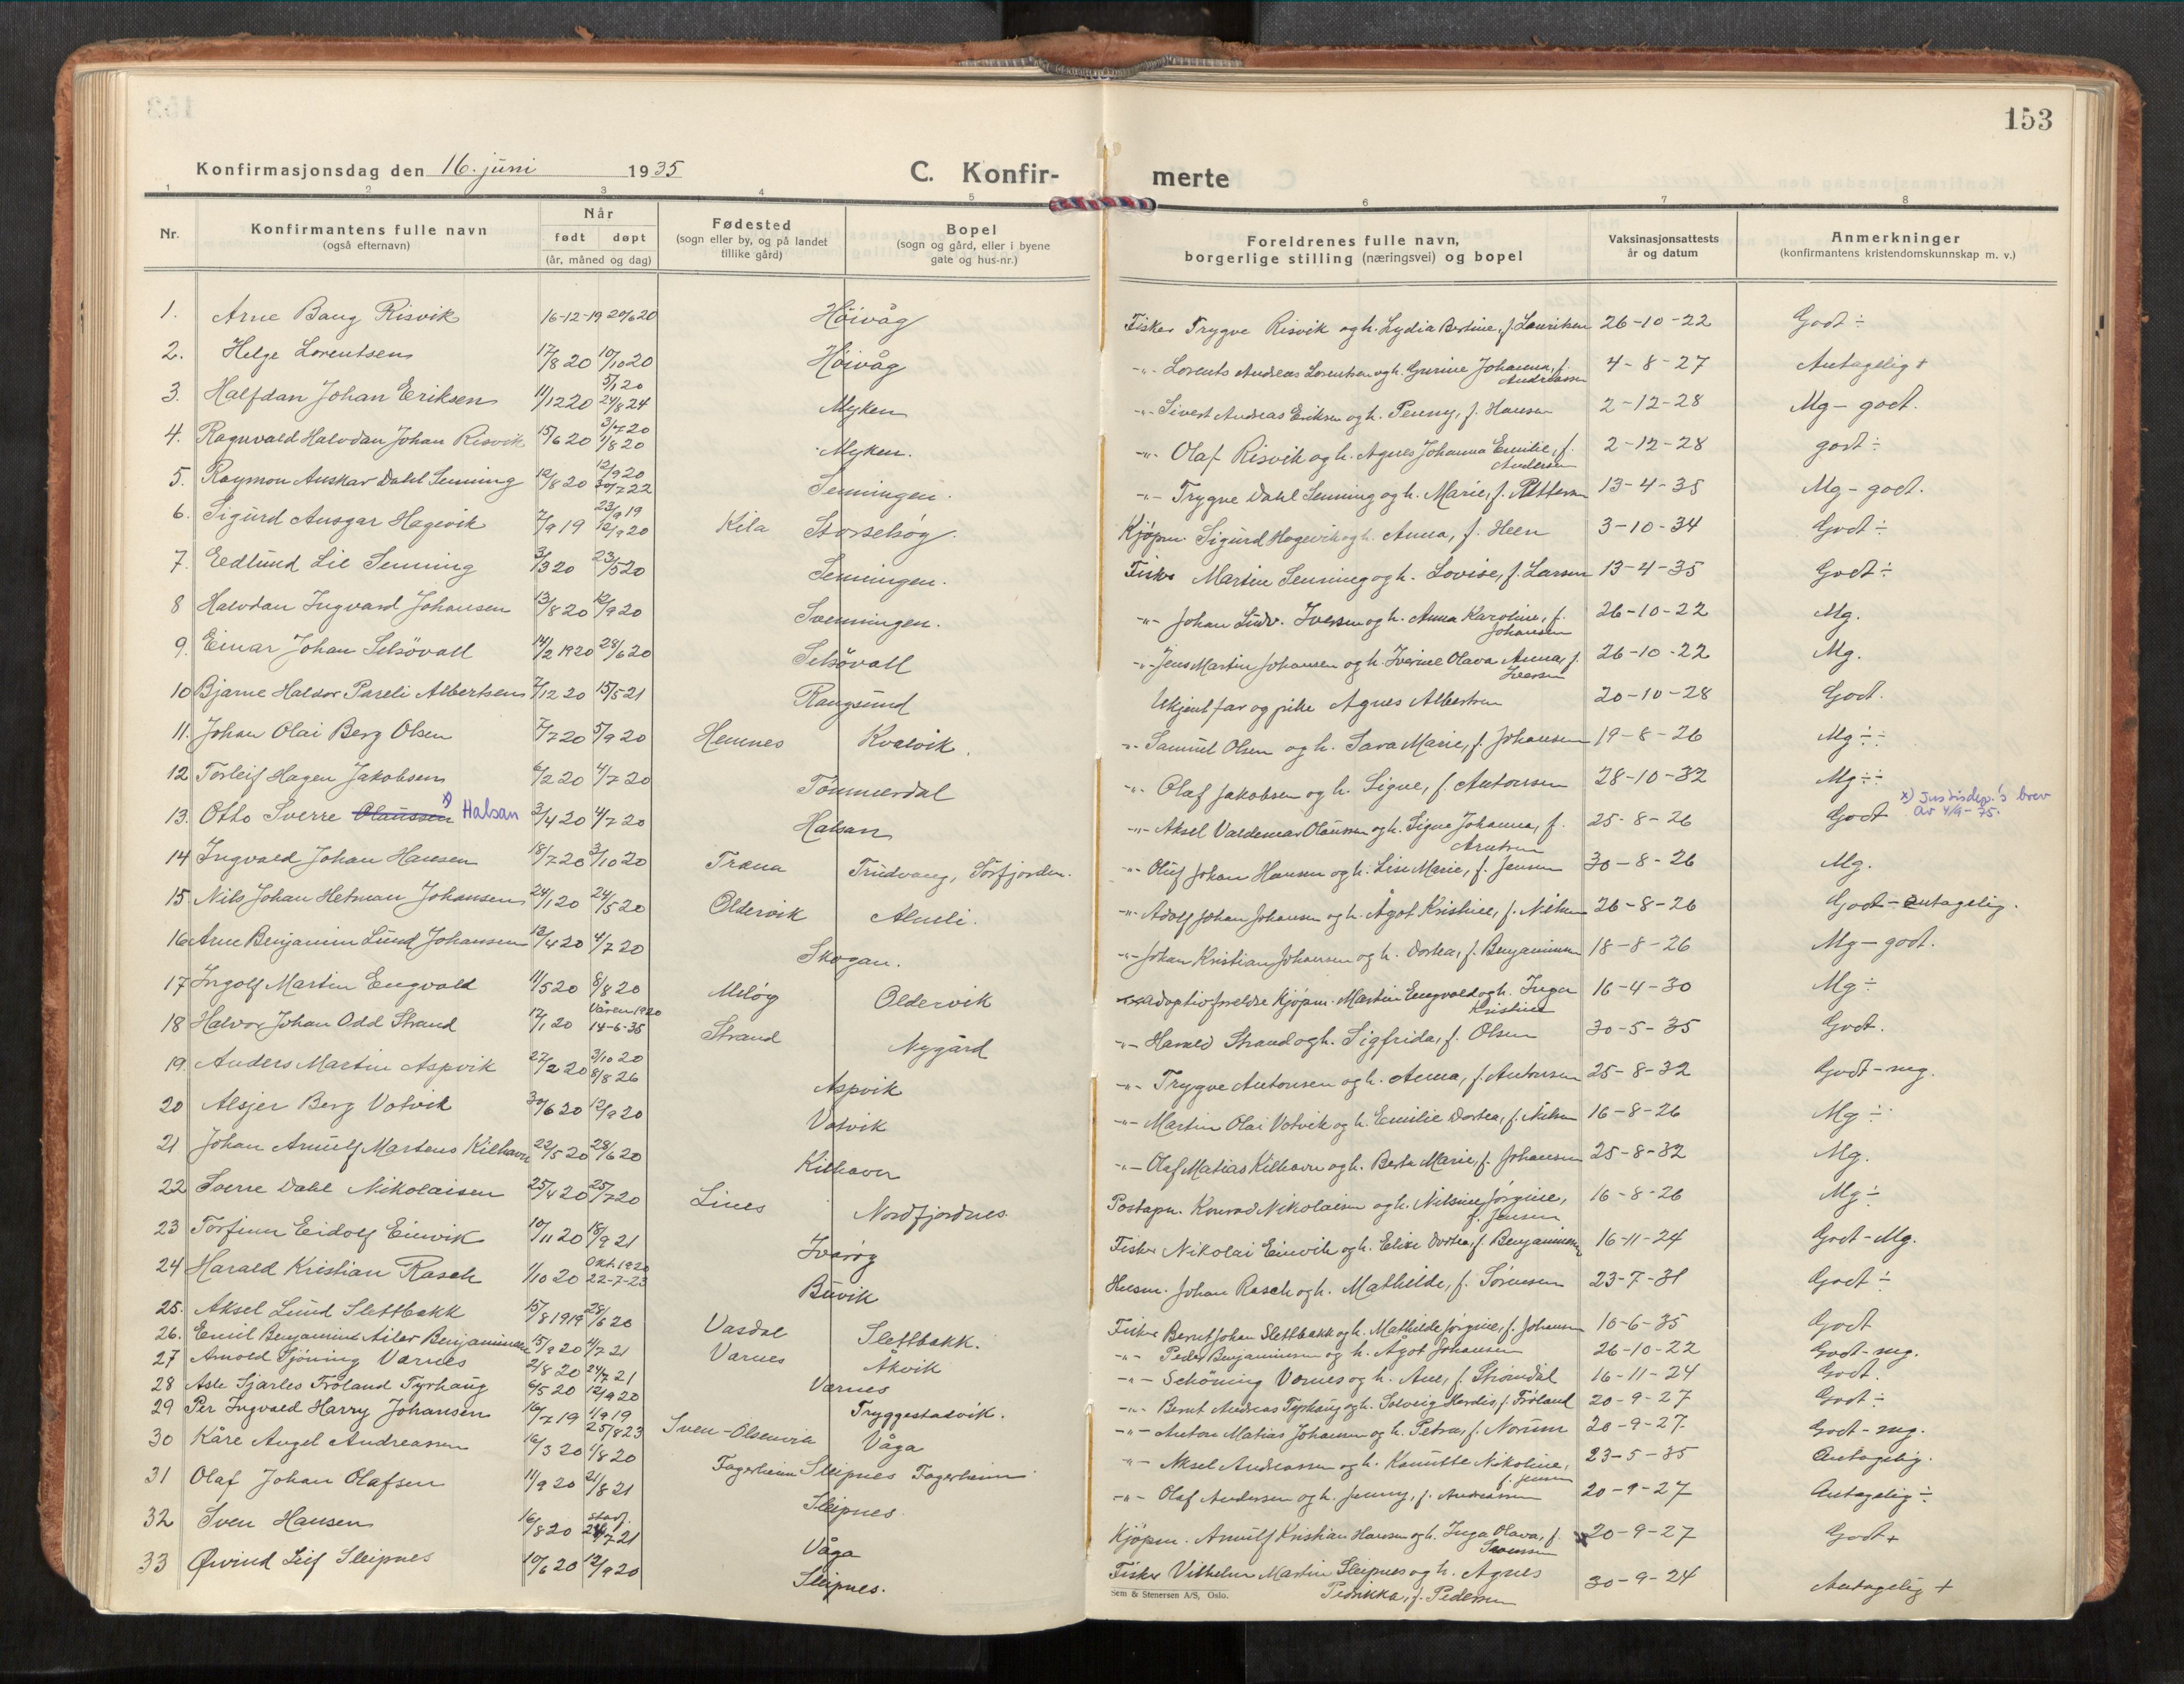 153
Konfirmasjonsdag den 16. juni 1935
C. Konfir- merte
1 2 3 4 5 6 7 8
Nr.
Konfirmantens fulle navn
(også efternavn)
Når
født døpt
(år, måned og dag)
Fødested
(sogn eller by, og på landet
tillike gård)
Bopel
(sogn og gård, eller i byene
gate og hus-nr.)
Foreldrenes fulle navn,
borgerlige stilling (næringsvei) og bopel
Vaksinasjonsattests
år og datum
Anmerkninger
(konfirmantens kristendomskunnskap m. v.)
1. Arne Bang Risvik 16-12-19 20/6 20 Höivåg Fisker Trygve Risvik og h. Lydia Bertine, f. Lauritsen 26-10-22 Godt ÷
2. Helge Lorentsen 17/8 20 10/10 20 Höivåg -"- Lorents Andreas Lorentsen og h. Gurine Johanna, f. Andreassen 4-8-27 Antagelig +
3. Halfdan Johan Eriksen 11/12 20 5/1 20 24/8 24 Myken -"- Sivert Andreas Eriksen og h. Penny, f. Hansen 2-12-28 Mg - godt.
4. Ragnvald Halvdan Johan Risvik 15/6 20 3/7 20 1/8 20 Myken. -"- Olaf Risvik og h. Agnes Johanna Emilie, f. Andersen 2-12-28 godt ÷
5. Raymon Anskar Dahl Senning 12/8 20 12/9 20 30/7 22 Senningen. -"- Trygve Dahl Senning og h. Marie, f. Pettersen 13-4-35 Mg - godt.
6. Sigurd Ansgar Hagevik 7/9 19 23/9 19 12/9 20 Kila Storselsøy. Kjøpm. Sigurd Hagevik og h. Anna, f. Heen 3-10-34 Godt ÷
7. Eedlund Lie Senning 3/3 20 23/5 20 Senningen. Fisker Martin Senning og h. Lovise, f. Larsen 13-4-35 Godt ÷
8 Halvdan Ingvard Johansen 13/8 20 12/9 20 Svenningen. -"- Johan Ludv. Iversen og h. Anna Karoline, f. Johansen 26-10-22 Mg.
9. Einar Johan Selsövall 14/2 1920 28/6 20 Selsövall -"- Jens Martin Johansen og h. Iverine Olava Anna, f. Iversen 26-10-22 Mg.
10 Bjarne Haldor Pareli Albertsen 7/12 20 15/5 21 Rangsund Ukjent far og pike Agnes Albertsen 20-10-28 Godt.
11. Johan Olai Berg Olsen 7/7 20 5/9 20 Hemnes Kvalvik. -"- Samuel Olsen og h. Sara Marie, f. Johansen 19-8-26 Mg ÷÷
12 Torleif Hagen Jakobsen 6/2 20 4/7 20 Tömmerdal -"- Olaf Jakobsen og h. Signe, f. Antonsen 28-10-32 Mg ÷÷
13. Otto Sverre Olaussen x) Halsan 3/4 20 4/7 20 Halsan -"- Aksel Valdemar Olaussen og h. Signe Johanna, f. Arntsen 25-8-26 Godt x) Justisdep.'s brev av 4/9-75.
14 Ingvald Johan Hansen 18/7 20 3/10 20 Træna Trudvang, Sörfjorden. -"- Oluf Johan Hansen og h. Lise Marie, f. Jensen 30-8-26 Mg.
15 Nils Johan Hetman Johansen 24/1 20 24/5 20 Oldervik Almli. -"- Adolf Johan Johansen og h. Ågot Kristine, f. Nilsen 26-8-26 Godt - antagelig.
16 Arne Benjamin Lund Johansen 13/4 20 4/7 20 Skogan. -"- Johan Kristian Johansen og h. Dortea, f. Benjaminsen 18-8-26 Mg - godt.
17 Ingolf Martin Engvald 11/5 20 8/8 20 Meløy Oldervik Adoptivforeldre Kjöpm. Martin Engvald og h. Inga Kristine 16-4-30 Mg ÷
18 Halvor Johan Odd Strand 17/1 20 Våren 1920 14-6-35 Strand Nygård -"- Harald Strand og h. Sigfrida, f. Olsen 30-5-35 Godt.
19. Anders Martin Aspvik 27/2 20 3/10 20 8/8 26 Aspvik -"- Trygve Antonsen og h. Anna, f. Antonsen 25-8-32 Godt - mg.
20 Alsjer Berg Votvik 30/6 20 12/9 20 Votvik -"- Martin Olai Votvik og h. Emilie Dortea, f. Nilsen 16-8-26 Mg ÷
21 Johan Arnulf Martens Kilhavn 22/5 20 28/6 20 Kilhavn -"- Olaf Matias Kilhavn og h. Berta Marie, f. Johansen 25-8-32 Mg.
22 Sverre Dahl Nikolaisen 25/4 20 25/7 20 Lines Nordfjordnes. Postapn. Konrad Nikolaisen og h. Nilsine Jørgine, f. Jensen 16-8-26 Mg ÷
23 Torfinn Eidolf Einvik 10/11 20 18/9 21 Ivarøy Fisker Nikolai Einvik og h. Elise Dortea, f. Benjaminsen 16-11-24 Godt - Mg.
24 Harald Kristian Rasch 1/10 20 Okt. 1920 22-7-23 Buvik Husm. Johan Rasch og h. Mathilde, f. Sörensen 23-7-31 Godt ÷
25. Aksel Lund Slettbakk 15/8 1919 28/6 20 Vasdal Slettbakk. Fisker Bernt Johan Slettbakk og h. Mathilde Jørgine, f. Johansen 16-6-35 Godt
26. Emil Benjamins Ailer Benjaminsen 15/9 20 4/7 21 Varnes Åkvik -"- Peder Benjaminsen og h. Ågot Johansen 26-10-22 Godt - mg.
27 Arnold Sjöning Varnes 21/8 20 24/7 21 Varnes -"- Schöning Varnes og h. Ane, f. Strömdal 16-11-24 Godt.
28 Asle Sjarles Fröland Tyrhaug 6/5 20 12/9 20 Tryggestadvik. -"- Bernt Andreas Tyrhaug og h. Solveig Herdis, f. Fröland 20-9-27 Godt ÷
29 Per Ingvald Harry Johansen 16/7 19 1/9 19 25/8 23 Sven-Olsenvik Våga -"- Anton Matias Johansen og h. Petra, f. Norum 20-9-27. Godt - mg.
30 Kåre Angel Andreassen 16/3 20 1/8 20 Fagerheim Sleipnes Fagerheim -"- Aksel Andreassen og h. Kanutte Nikoline, f. Jensen 23-5-35 Antagelig.
31 Olaf Johan Olafsen 11/9 20 21/8 21 Sleipnes -"- Olaf Andersen og h. Jenny, f. Andreassen 20-9-27 Antagelig ÷
32 Sven Hansen 16/8 20 stad. 24/7 21 Våga Kjöpm. Arnulf Kristian Hansen og h. Inga Olava, f. Svensen 20-9-27 Godt +
33 Øivind Leif Sleipnes 10/6 20 12/9 20 Sleipnes. Fisker Vilhelm Martin Sleipnes og h. Agnes Pedrikka, f. Pedersen 30-9-24 Antagelig +
Sem & Stenersen A/S, Oslo.